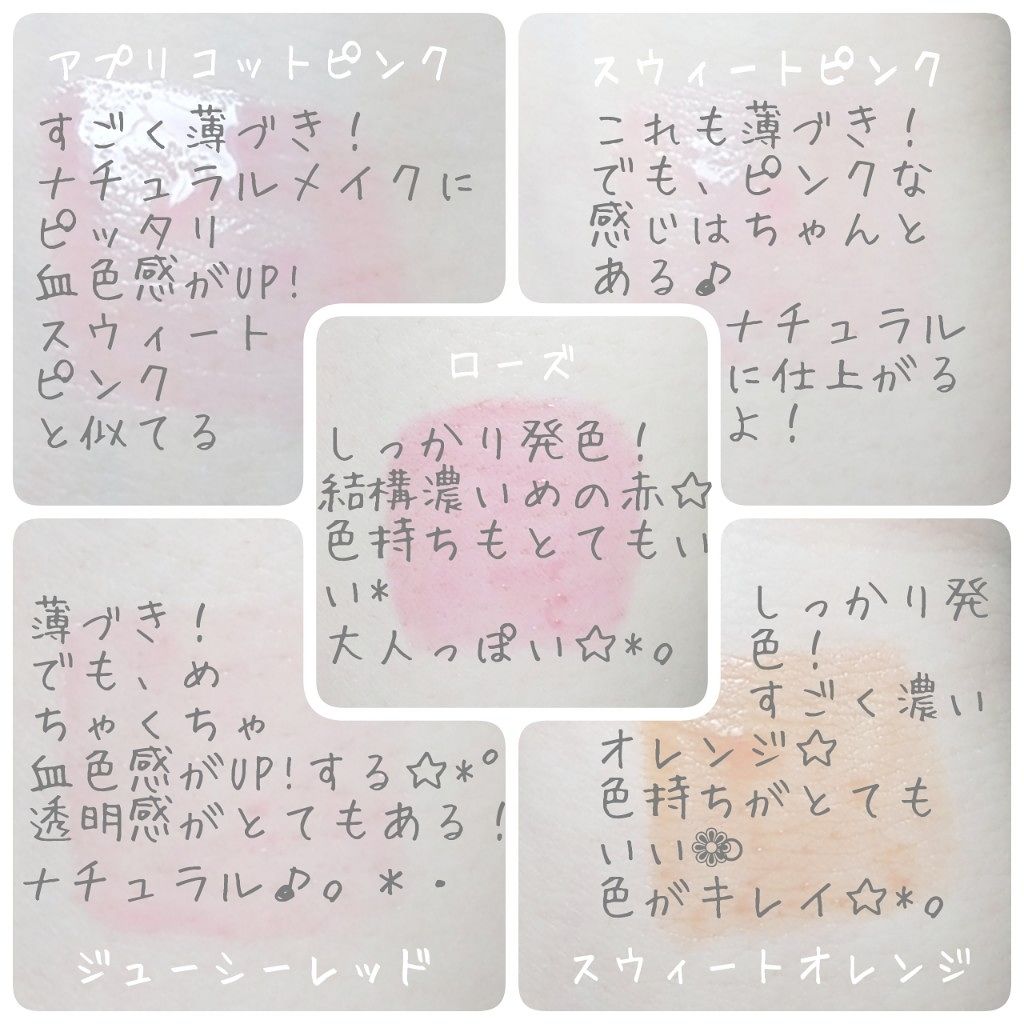 アプリコットピンク
すごく薄づき！
ナチュラルメイクに
ピッタリ
血色感がUP!
スウィート
ピンク
と似てる
スウィートピンク
これも薄づき！
でも、ピンクな
感じはちゃんと
ある♪
ナチュラル
に仕上がる
よ！
ローズ
しっかり発色！
結構濃いめの赤☆
色持ちもとてもい
い*
大人っぽい☆*。
薄づき！
でも、め
ちゃくちゃ
血色感がUP!する☆*°
透明感がとてもある！
ナチュラル♪。*・
ジューシーレッド
しっかり発
色！
すごく濃い
オレンジ☆
色持ちがとても
いい❁
色がキレイ☆*。
スウィートオレンジ